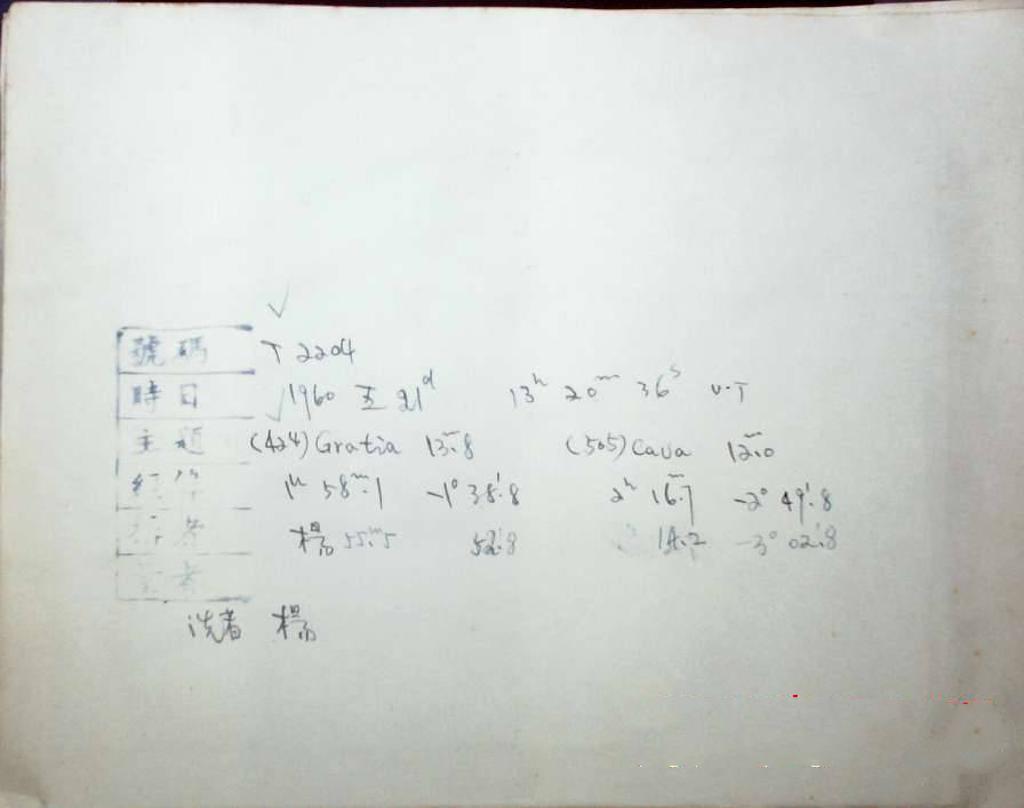 號碼 T 2204
時日 1960 五 21d 13h 20m 36s U.T
主題 (424) Gratia 13m.8 (505) Cava 12m.0
1h 58m.1 -1° 38'.8 2h 16m.7 -2° 49'.8
楊 55m.5 52'.8 14.2 -3° 02'.8
洗者 楊